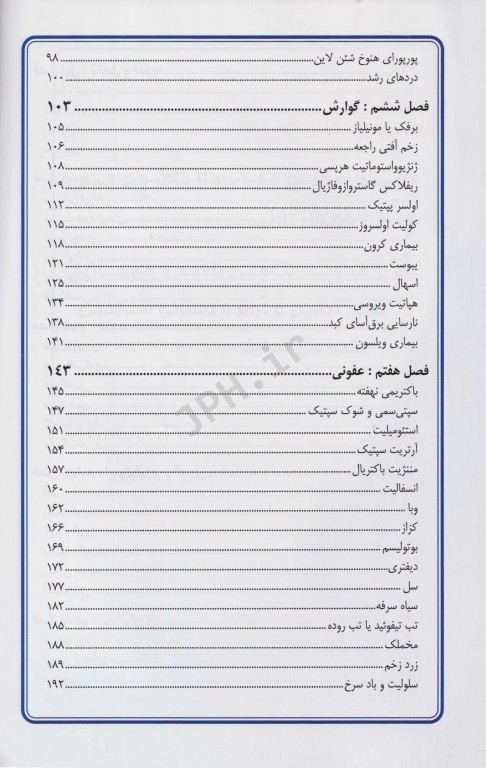 پورپورای هنوخ شئن لاین ۹۸
دردهای رشد ۱۰۰
فصل ششم : گوارش ۱۰۳
برفک یا مونیلیاز ۱۰۵
زخم آفتی راجعه ۱۰۶
ژنژیوواستوماتیت هرپسی ۱۰۸
ریفلاکس گاستروازوفاژیال ۱۰۹
اولسر پپتیک ۱۱۲
کولیت اولسروز ۱۱۵
بیماری کرون ۱۱۸
یبوست ۱۲۱
اسهال ۱۲۵
هپاتیت ویروسی ۱۳۴
نارسایی برق‌آسای کبد ۱۳۸
بیماری ویلسون ۱۴۱
فصل هفتم : عفونی ۱۴۳
باکتریمی نهفته ۱۴۵
سپتی‌سمی و شوک سپتیک ۱۴۷
استئومیلیت ۱۵۱
آرتریت سپتیک ۱۵۴
مننژیت باکتریال ۱۵۷
انسفالیت ۱۶۰
وبا ۱۶۲
کزاز ۱۶۶
بوتولیسم ۱۶۹
دیفتری ۱۷۲
سل ۱۷۷
سیاه سرفه ۱۸۲
تب تیفوئید یا تب روده ۱۸۵
مخملک ۱۸۸
زرد زخم ۱۸۹
سلولیت و باد سرخ ۱۹۲
JPH.ir